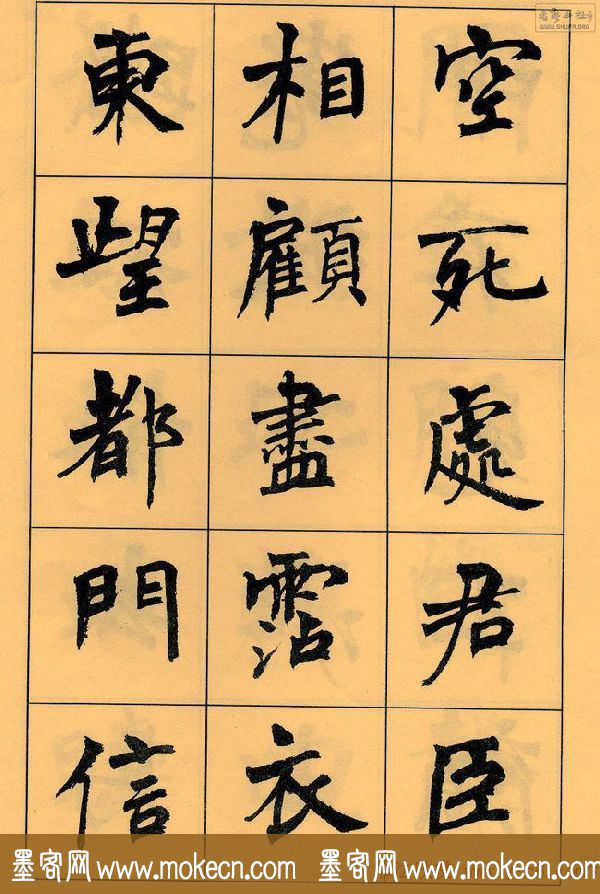 空死處君臣
相顧盡霑衣
東望都門信
墨客网 www.mokecn.com 墨客网 www.mokecn.com
WWW.SHUFA.ORG